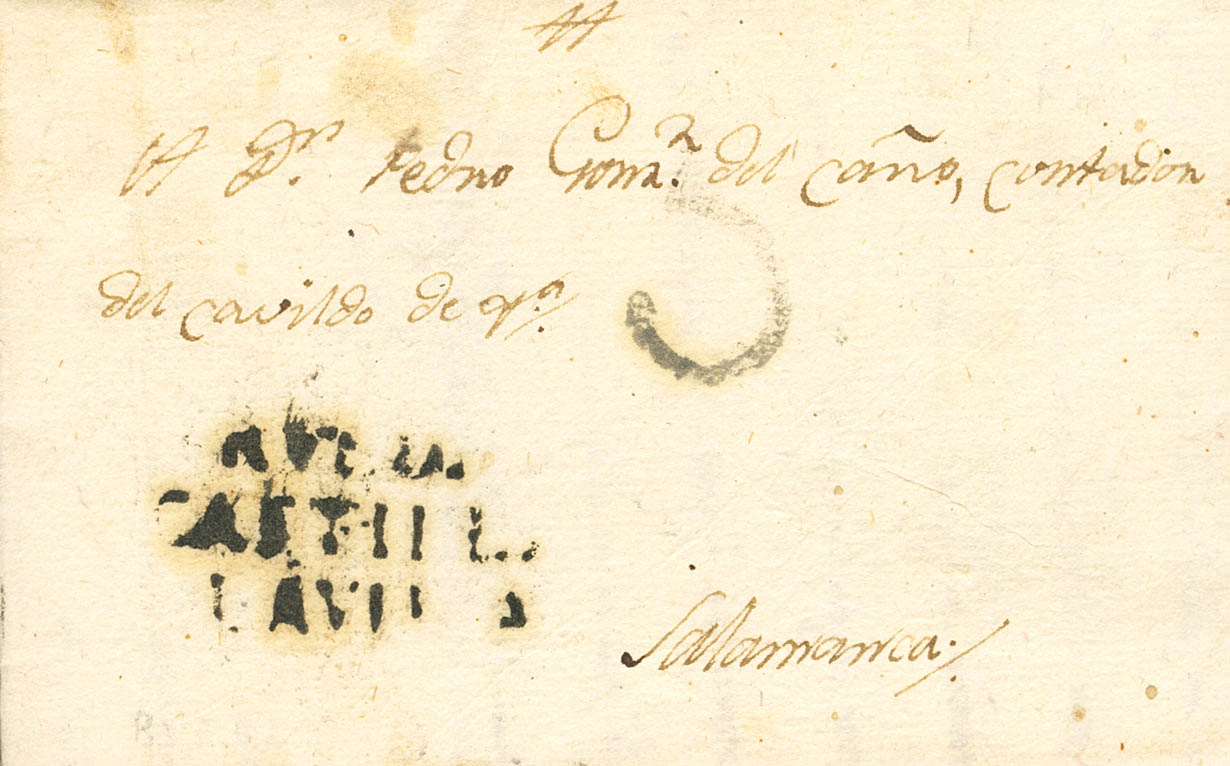 A Dn. Pedro Gomz. del caño, contador
del cavildo de
5
CASTILL
LAVIEJA
Salamanca.